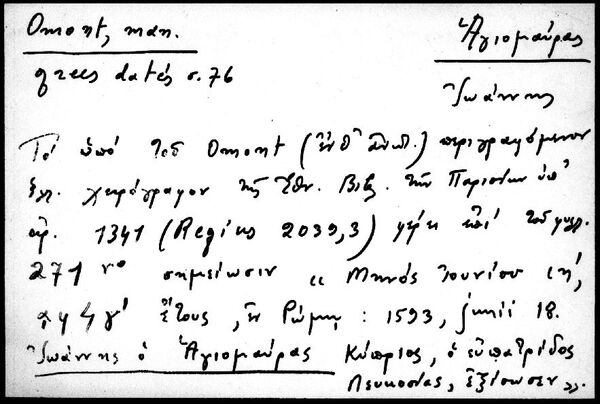 Omont, man.
grecs datés σ. 76
Ἁγιομαύρας
Ἰωάννης
Τὸ ὑπὸ τοῦ Omont (ἔνθ' ἀνωτ.) περιγραφόμενον
ἑλλ. χειρόγραφον τῆς Ἐθν. Βιβλ. τῶν Παρισίων ὑπ'
ἀρ. 1341 (Regius 2039,3) φέρει ἐπὶ τοῦ φύλλ.
271 ro σημείωσιν "Μηνός Ἰουνίου ιη',
͵αφϟγ' ἔτους, ἐν Ῥώμῃ : 1593, junii 18.
Ἰωάννης ὁ Ἁγιομαύρας Κύπριος, ὁ εὐπατρίδος
Λευκοσίας, ἐξίσωσεν".